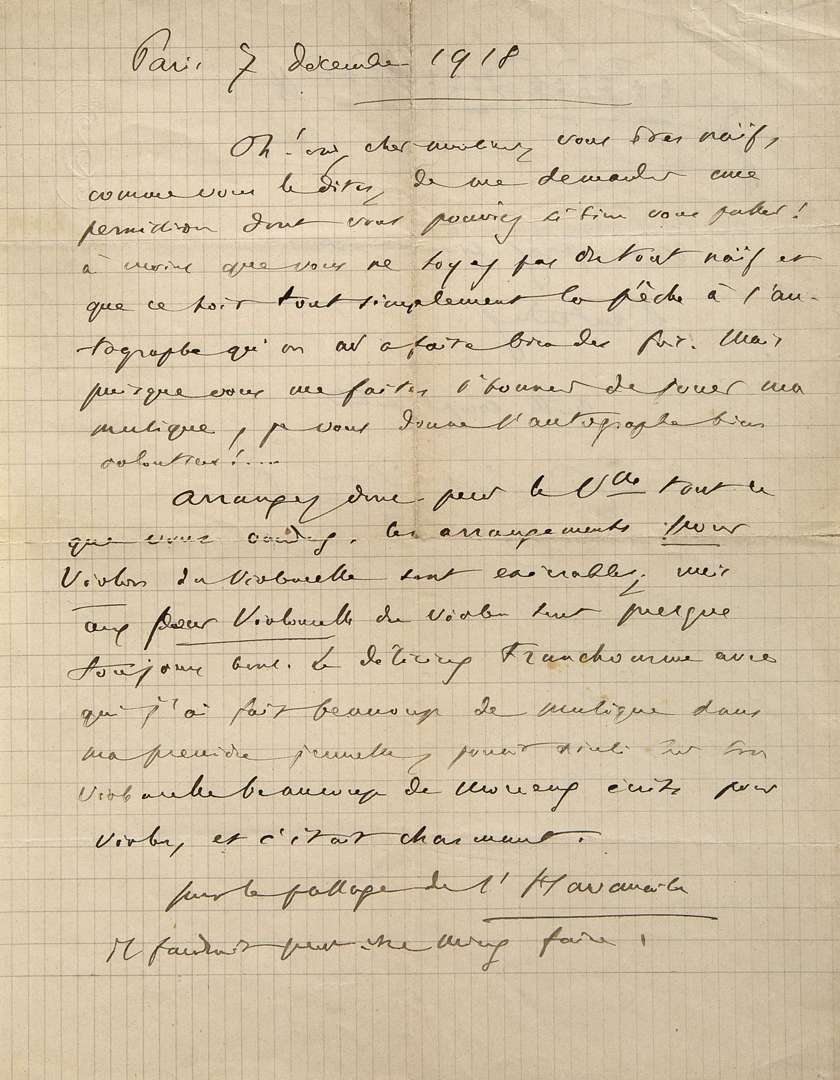 Paris 7 décembre 1918
Oh! oui, cher monsieur, vous êtes naïf,
comme vous le dites, de me demander une
permission dont vous pouviez si bien vous passer!
à moins que vous ne soyez pas du tout naïf et
que ce soit tout simplement la pêche à l'au-
tographe qu'on a faite bien des fois. Mais
puisque vous me faites l'honneur de jouer ma
musique, je vous donne l'autographe bien
volontiers!....
Arrangez donc pour le Vlle tout ce
que vous voudrez. les arrangements pour
Violon du Violoncelle sont exécrables; mais
ceux pour Violoncelle du Violon sont presque
toujours bons. Le délicieux Franchomme avec
qui j'ai fait beaucoup de musique dans
ma première jeunesse, jouait ainsi sur son
violoncelle beaucoup de morceaux écrits pour
violon, et c'était charmant.
pour le passage de l'Havanaise
il faudrait peut-être mieux faire